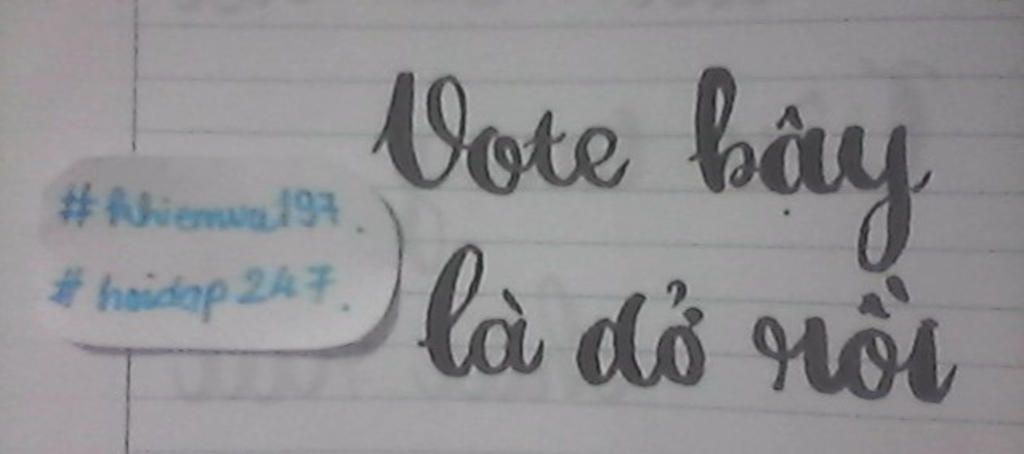 Vote bây
là dở rồi
#khiemvu197.
#hoidap247.